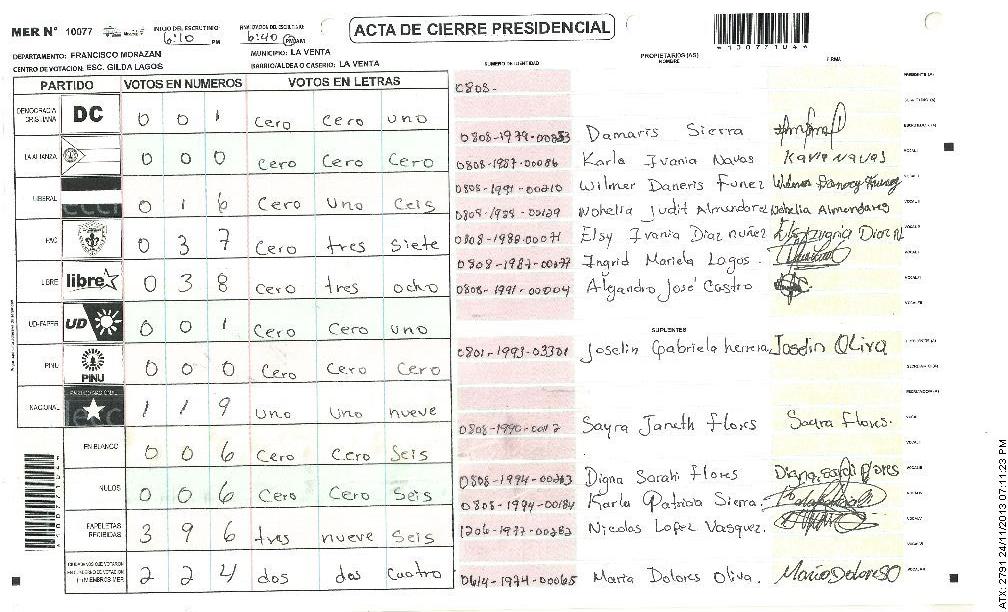 MER N° 10077
INICIO DEL ESCRUTINIO: 6:10 PM
6:40 PM AM
ACTA DE CIERRE PRESIDENCIAL
DEPARTAMENTO: FRANCISCO MORAZAN
MUNICIPIO: LA VENTA
CENTRO DE VOTACION: ESC. GILDA LAGOS
BARRIO/ALDEA O CASERIO: LA VENTA
PARTIDO VOTOS EN NUMEROS VOTOS EN LETRAS
DEMOCRACIA CRISTIANA DC 0 0 1 cero cero uno
LA ALIANZA 0 0 0 cero Cero Cero
LIBERAL 0 1 6 Cero uno Ceis
PAC 0 3 7 Cero tres Siete
LIBRE libre 0 3 8 cero tres ocho
UD-FAPER UD 0 0 1 Cero Cero uno
PINU PINU 0 0 0 Cero Cero Cero
NACIONAL 1 1 9 uno uno nueve
EN BLANCO 0 0 6 Cero Cero Seis
NULOS 0 0 6 Cero Cero Seis
PAPELETAS RECIBIDAS 3 9 6 tres nueve Seis
2 2 4 dos dos Cuatro
NUMERO DE IDENTIDAD PROPIETARIOS (AS) NOMBRE FIRMA
0808-
Damaris Sierra
0808-1987-00086 Karla Ivania Navas Karla Navas
0808-1991-00210 Wilmer Daneris Funez
Nohelia Judit Almendarez Nohelia Almendares
0808-1988-00071 Elsy Ivania Diaz nuñez
0808-1987-00077 Ingrid Mariela Lagos.
0808-1991-00004 Alejandro José Castro
SUPLENTES
0801-1993-03301 Joselin Gabriela herrera Joselin Oliva
Sayra Janeth flores Sayra Flores.
Digna Sarahi Flores
0808-1994-00184 Karla Patricia Sierra.
Nicolas Lopez Vasquez.
0614-1974-00065 Maria Dolores Oliva.
ATX: 2791 24/11/2013 07:11:23 PM